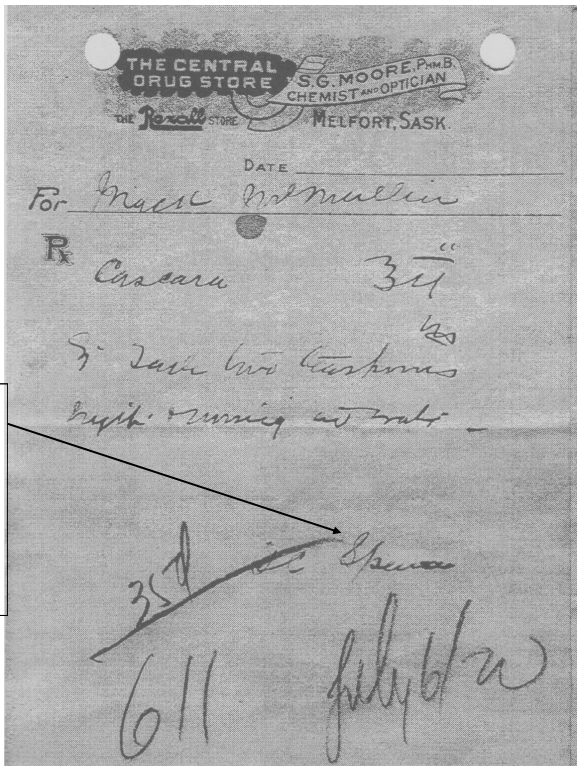 THE CENTRAL
DRUG STORE
S.G. MOORE, PHM.B.
CHEMIST AND OPTICIAN
THE Rexall STORE
MELFORT, SASK.
DATE
For Mack McMullin
Rx
Cascara
two teaspoons
night & morning
35
Spence
611 July 6/20